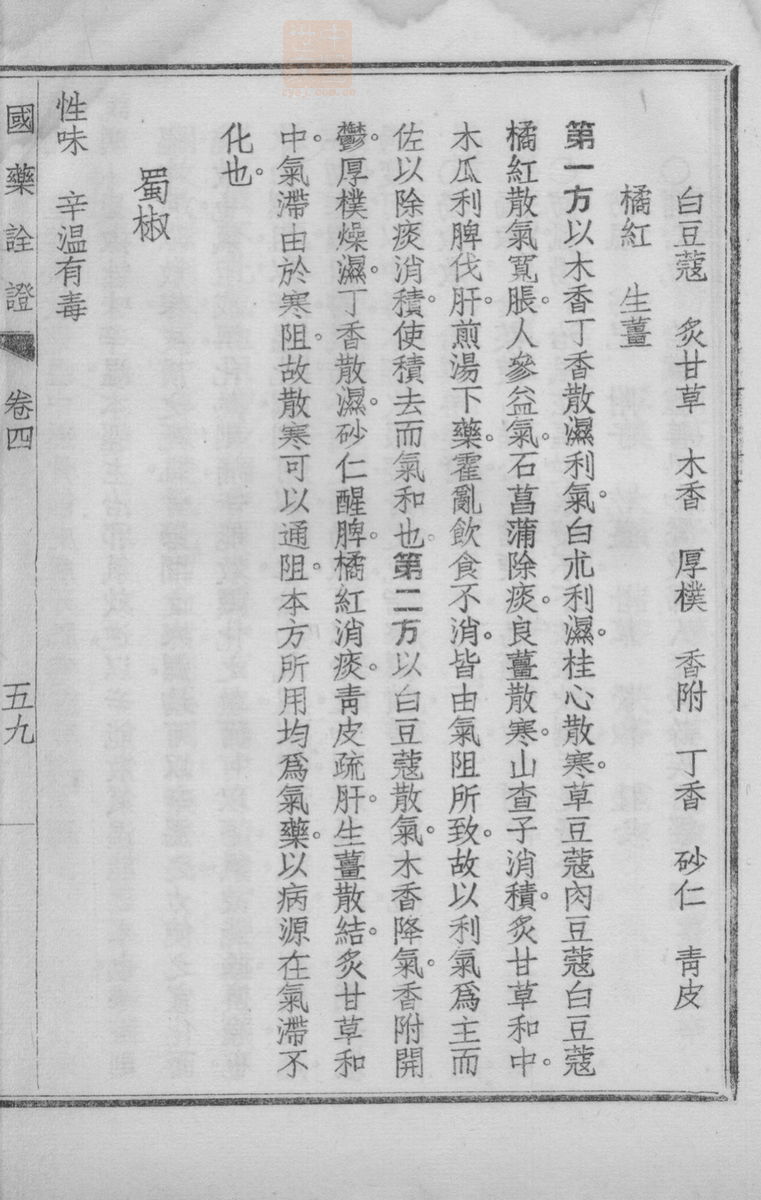 白豆蔻　炙甘草　木香　厚樸　香附　丁香　砂仁　靑皮
橘紅　生薑
第一方以木香丁香散濕利氣。白朮利濕。桂心散寒。草豆蔻肉豆蔻白豆蔻
橘紅散氣寬脹。人參益氣。石菖蒲除痰。良薑散寒。山查子消積。炙甘草和中。
木瓜利脾伐肝。煎湯下藥。霍亂飲食不消。皆由氣阻所致。故以利氣爲主而
佐以除痰消積。使積去而氣和也。第二方以白豆蔻散氣。木香降氣。香附開
鬱。厚樸燥濕。丁香散濕。砂仁醒脾。橘紅消痰。靑皮疏肝。生薑散結。炙甘草和
中。氣滯由於寒阻。故散寒可以通阻。本方所用均爲氣藥。以病源在氣滯不
化也。
蜀椒
性味　辛溫有毒
國藥詮證　卷四　五九